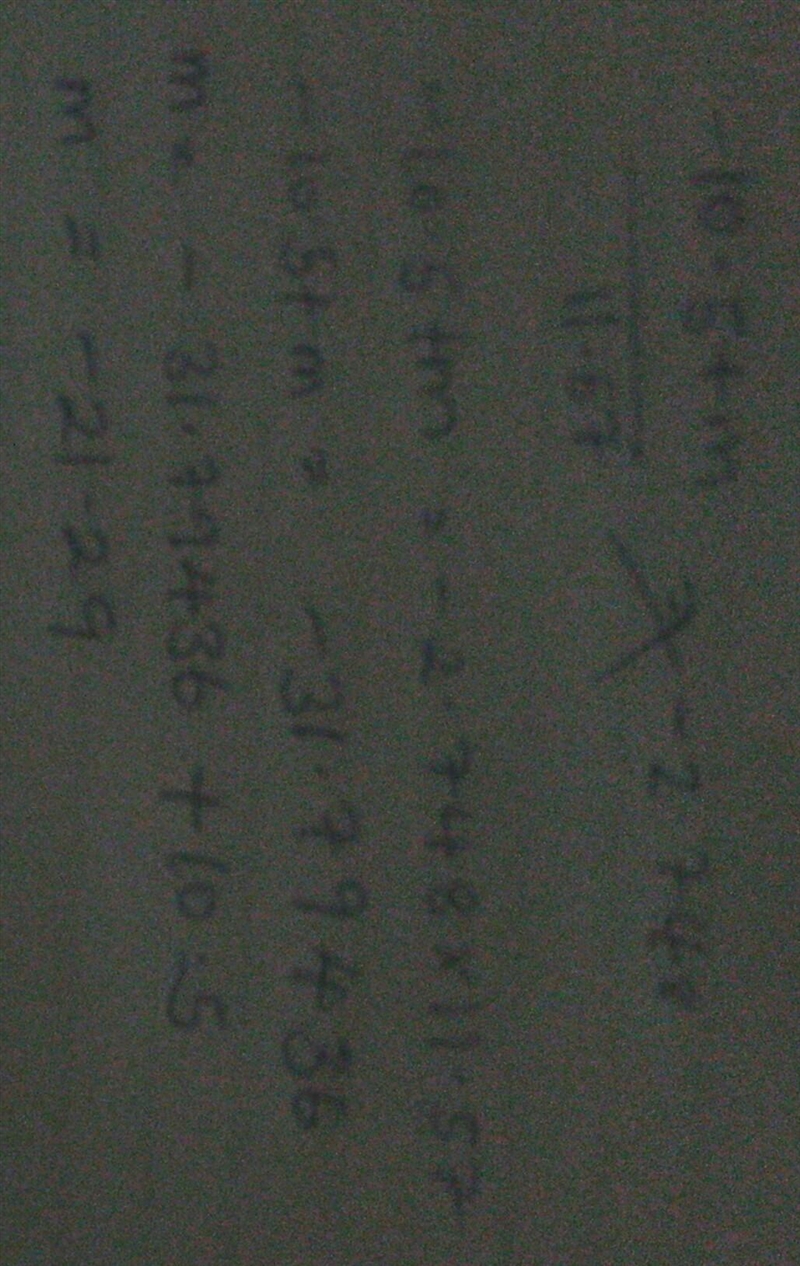 -10.5+m > -2.748
11.57
-10.5+m = -2.748x11.57
-10.5+m = -31.79436
m = -31.79436 + 10.5
m = -21.29